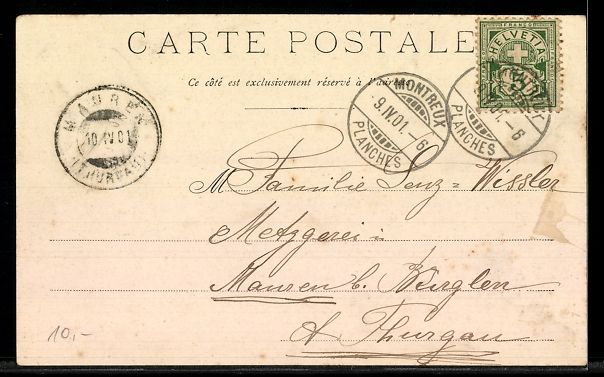 CARTE POSTALE
Ce côté est exclusivement réservé à l'adresse
FRANCO
HELVETIA
5
MONTREUX
9.IV.01.-6
PLANCHES
MONTREUX
01.-6
PLANCHES
MAUREN
10.IV.01
(THURGAU)
M Familie Lenz=Wissler
Metzgerei
Mauren b. Bürglen
Ct Thurgau
10,-